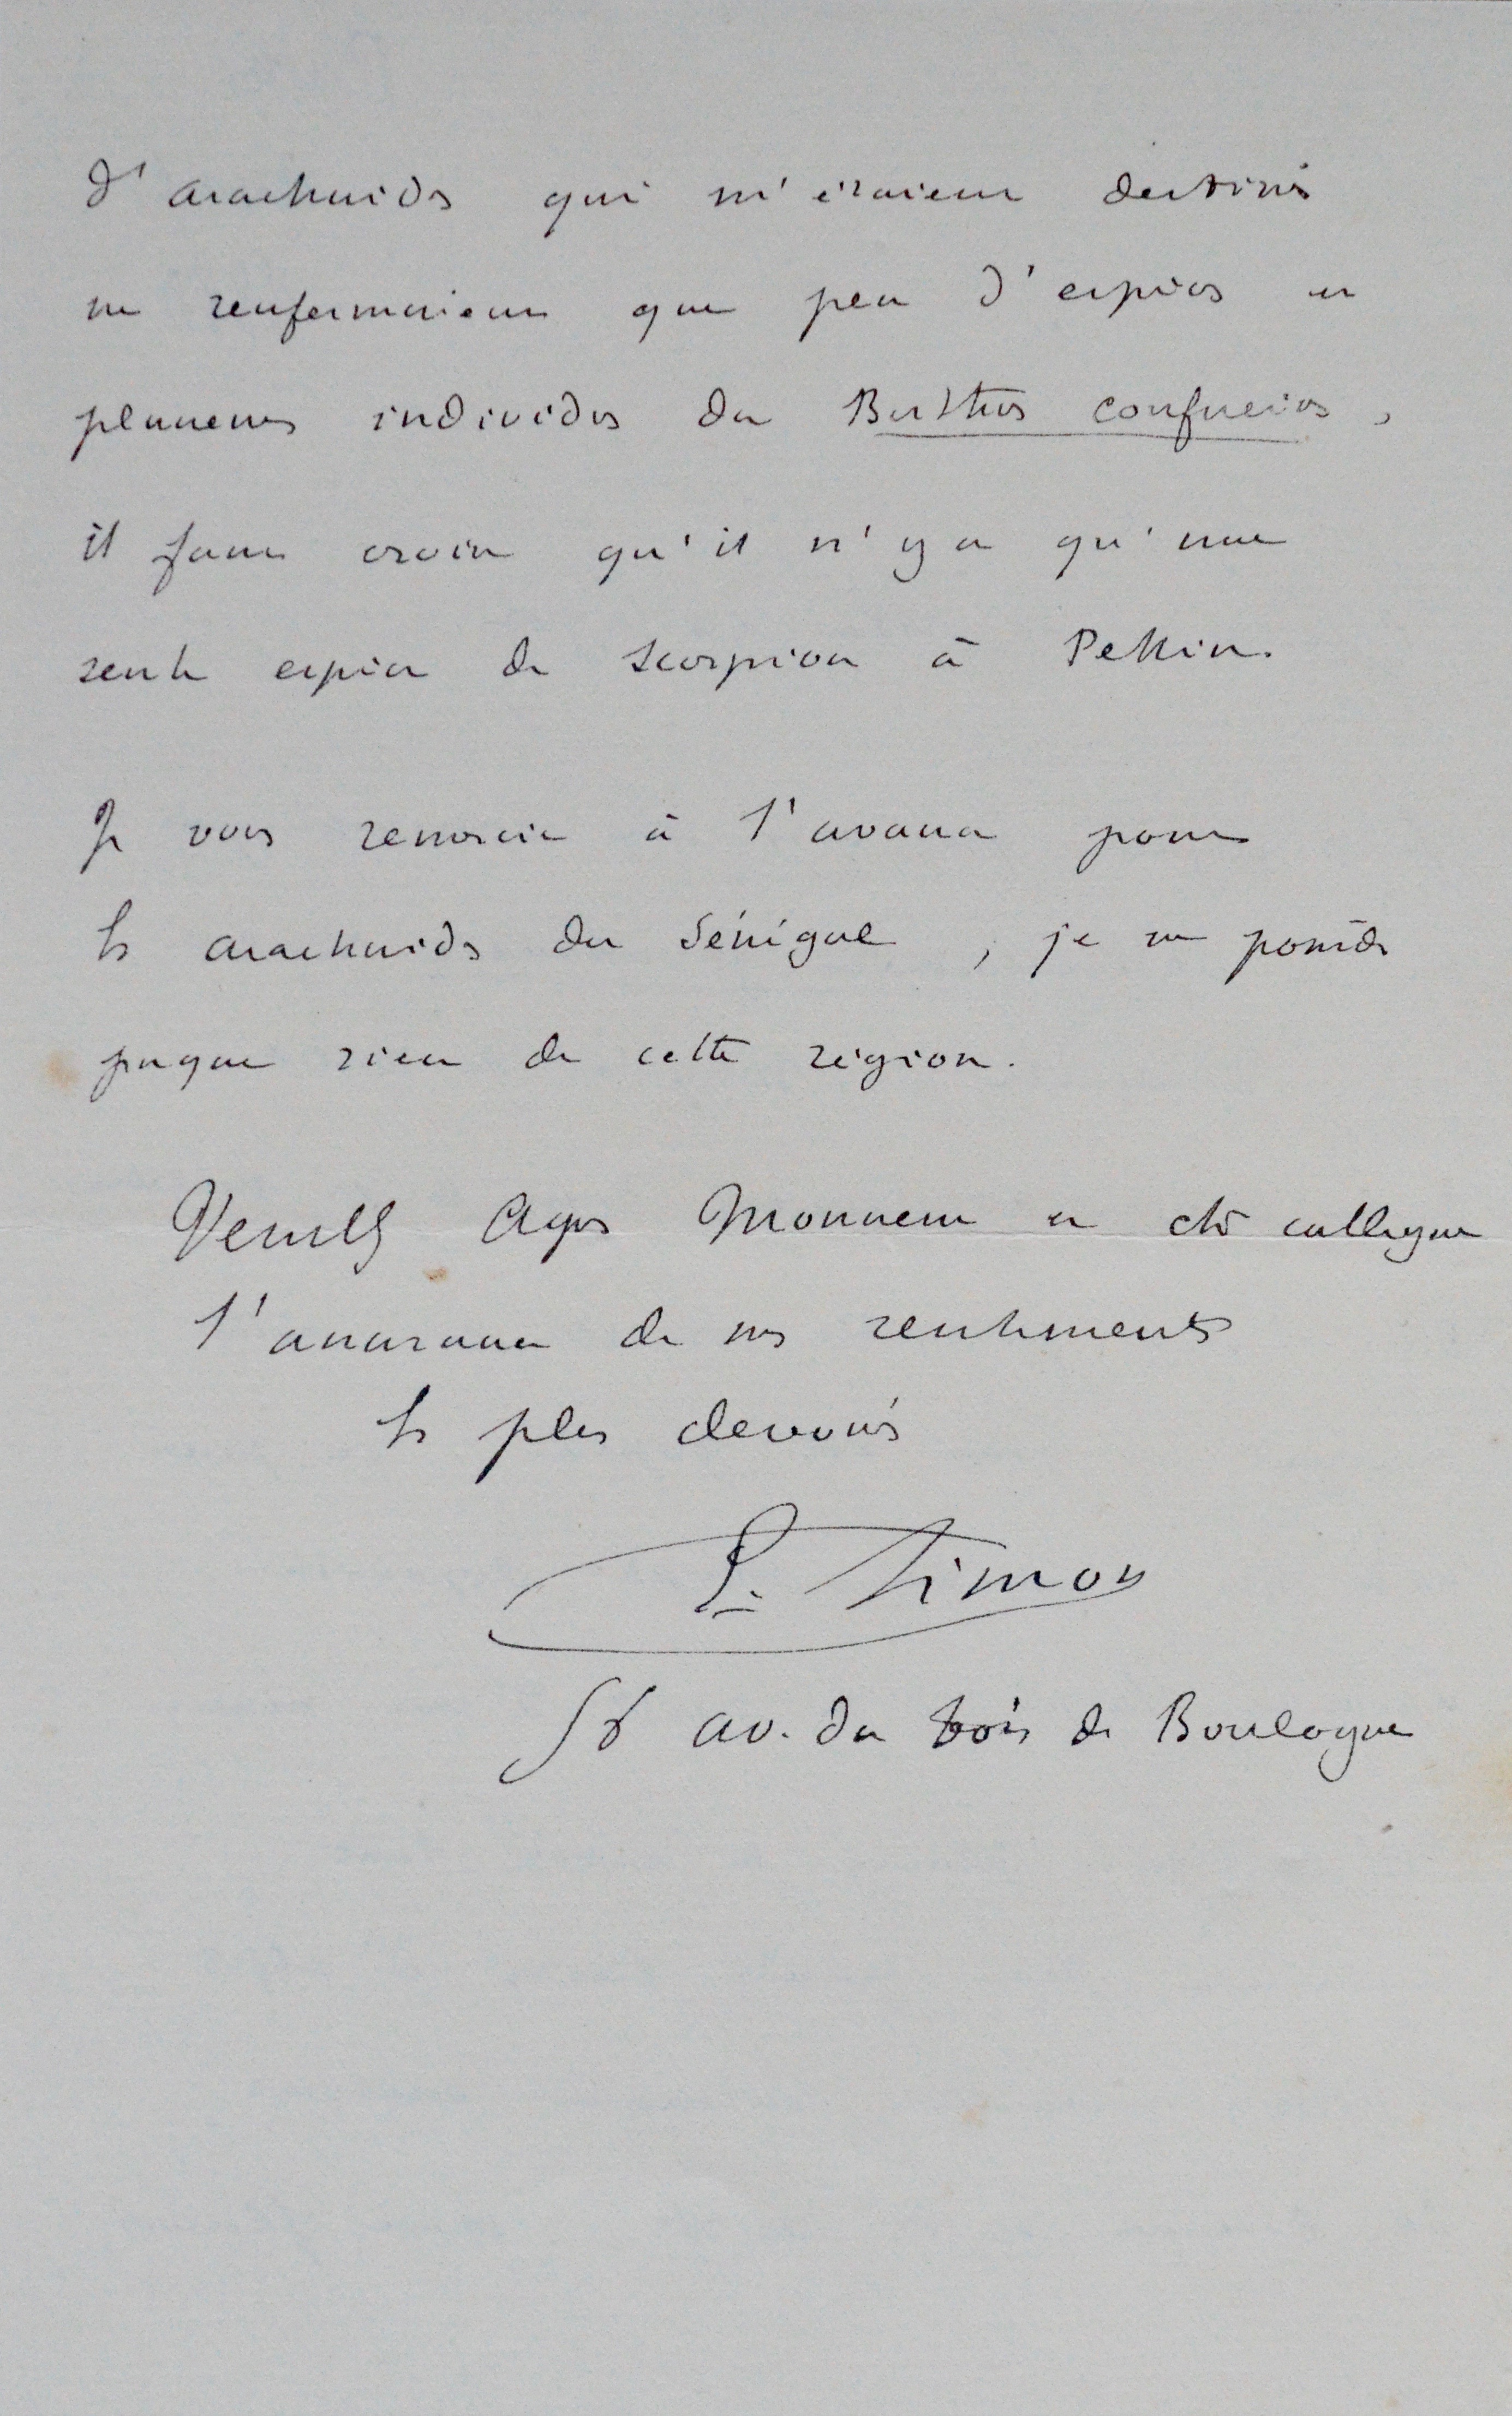 d'arachnides qui m'étaient destinés
ne renfermaient que peu d'espèces et
plusieurs individus du Buthus confucius,
il faut croire qu'il n'y a qu'une
seule espèce de scorpion à Pekin.
Je vous remercie à l'avance pour
les arachnides du Sénégal, je ne possède
presque rien de cette région.
Veuillez agréer Monsieur et cher collègue
l'assurance de mes sentiments
les plus dévoués
E. Simon
56 av. du bois de Boulogne